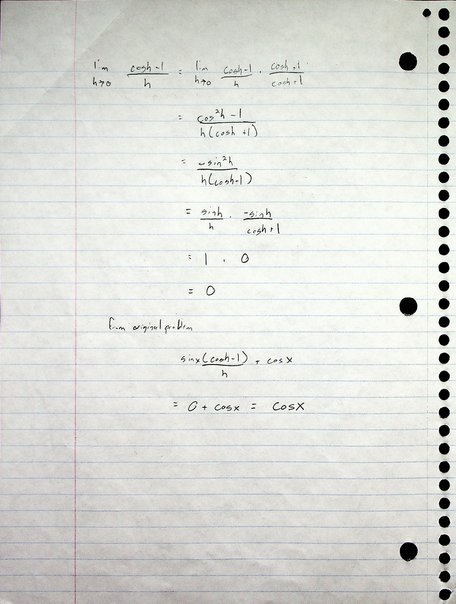 lim h→0 cosh-1/h = lim h→0 cosh-1/h · cosh+1/cosh+1
= cos²h-1/h(cosh+1)
= -sin²h/h(cosh-1)
= sinh/h · -sinh/cosh+1
= 1 · 0
= 0
from original problem
sinx(cosh-1)/h + cosx
= 0 + cosx = cosx